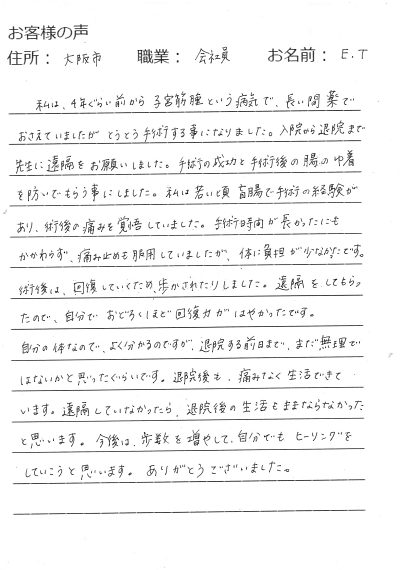 お客様の声
住所： 大阪市 職業： 会社員 お名前： E.T
私は、4年ぐらい前から子宮筋腫という病気で、長い間薬で
おさえていましたがとうとう手術する事になりました。入院から退院まで
先生に遠隔をお願いしました。手術の成功と手術後の腸の巾着
を防いでもらう事にしました。私は若い頃盲腸で手術の経験が
あり、術後の痛みを覚悟していました。手術時間が長かったにも
かかわらず、痛み止めも服用していましたが、体に負担が少なかったです。
術後は、回復していくため、歩かされたりしました。遠隔をしてもらっ
たので、自分でおどろくほど回復力がはやかったです。
自分の体なので、よく分かるのですが、退院する前日まで、まだ無理で
はないかと思ったぐらいです。退院後も、痛みなく生活できて
います。遠隔していなかったら、退院後の生活もままならなかった
と思います。今後は、歩数を増やして、自分でもヒーリングを
していこうと思います。ありがとうございました。